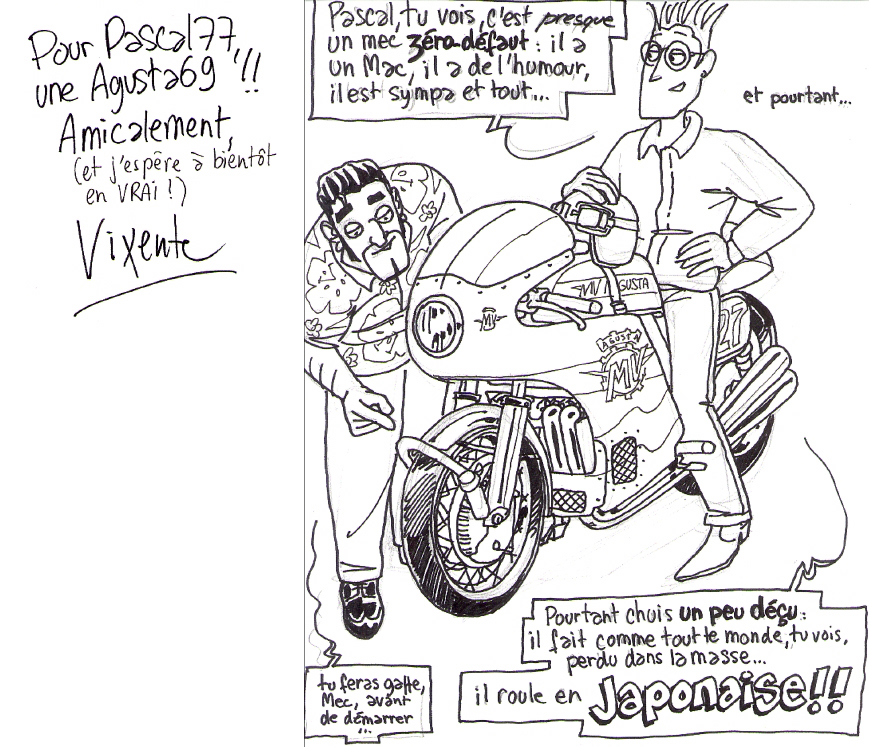 Pour Pascal77,
une Agusta69 '!!
Amicalement,
(et j'espère à bientôt
en VRAI !)
Vixente
Pascal, tu vois, c'est presque
un mec zéro-défaut : il a
un Mac, il a de l'humour,
il est sympa et tout...
et pourtant...
MV AGUSTA
MV
AGUSTA
MV
27
Pourtant chuis un peu déçu :
il fait comme tout le monde, tu vois,
perdu dans la masse...
il roule en JAPONAISE!!
tu feras gaffe,
Mec, avant
de démarrer
...